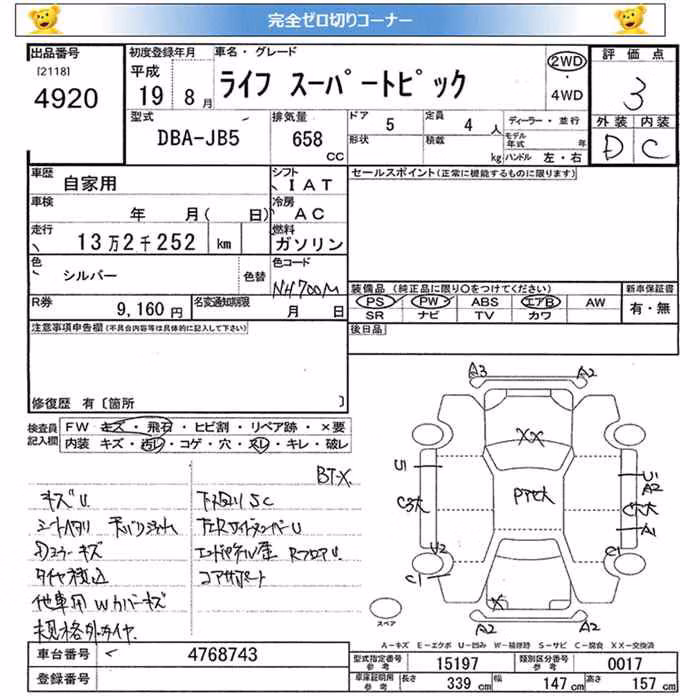 完全ゼロ切りコーナー
出品番号
[2118]
4920
初度登録年月
平成
19 8月
車名・グレード
ライフ スーパートピック
2WD
・
4WD
評価点
3
外装 内装
D C
型式
DBA-JB5
排気量
658
CC
ドア 5
形状
定員 4 人
積載 kg
ディーラー・並行
モデル年式 年
ハンドル 左・右
車歴
自家用
シフト
IAT
車検
年 月( 日)
冷房
AC
走行
13万2千252 km
燃料
ガソリン
色
シルバー
色替
色コード
NH700M
R券
9,160円
名変通知期限
月 日
セールスポイント(正常に機能するものに限ります)
装備品 (純正品に限り○をつけてください)
新車保証書
PS PW ABS エアB AW
SR ナビ TV カワ
有・無
後日品
注意事項申告欄(不具合内容等は具体的に記入して下さい)
修復歴 有〔箇所 〕
検査員記入欄
FW キズ・飛石・ヒビ割・リペア跡・×要
内装 キズ・汚レ・コゲ・穴・スレ・キレ・破レ
BT-X
キズU
シートヘタリ
Dコラーキズ
タイヤ積込
他車用Wカバーキズ
規格外タイヤ
下廻りSC
コアサポート
A3 A2
XX
U1
U1
A2
A1
U2
C1
C1
X
A2 A2
スペア
A-キズ E-エクボ U-凹み W-補修跡 S-サビ C-腐食 XX-交換済
車台番号
4768743
登録番号
型式指定番号
参考
15197
類別区分番号
参考
0017
車庫証明用
参考
長さ 339 cm
幅 147 cm
高さ 157 cm